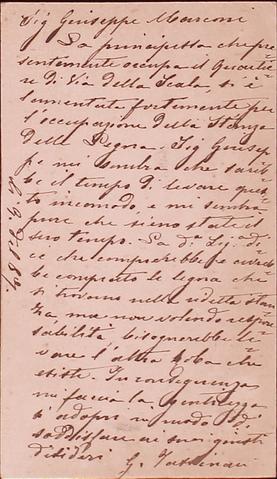 Sig Giuseppe Marconi
La principessa che pre
sentemente occupa il Quartie
re di Via della Scala, si è
lamentata fortemente per
l'occupazione della Stanza
Della Sig Giusep
pe mi sembra che sareb
be il tempo di levare ques
to incomodo, e mi sembra
pure che sieno state il
suo tempo. La d.a Sig. di
ce che comprerebbe o avreb
be comprato le legna che
si trovano nella sudetta stan
za ma non volendo respon
sabilità bisognerebbe le
vare l'altra roba che
esiste. In conseguenza
mi faccia la gentilezza
si adopri in modo di
soddisfare ai suoi giusti
desideri G.